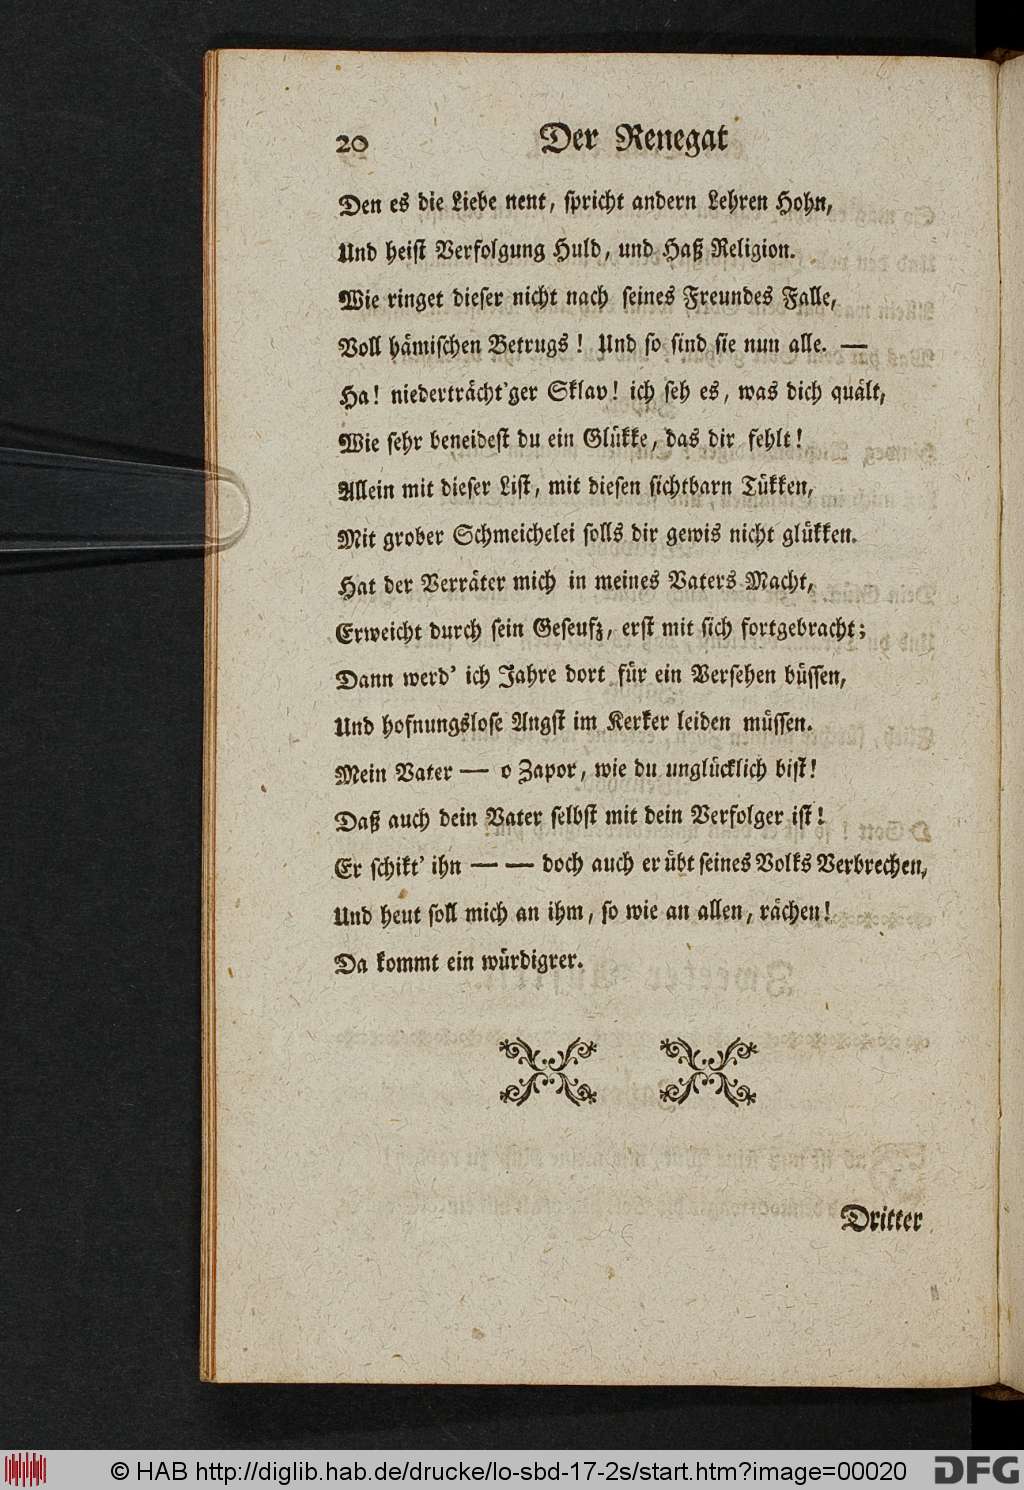 20 Der Renegat
Den es die Liebe nent, spricht andern Lehren Hohn,
Und heist Verfolgung Huld, und Haß Religion.
Wie ringet dieser nicht nach seines Freundes Falle,
Voll hämischen Betrugs! Und so sind sie nun alle. —
Ha! niederträcht'ger Sklav! ich seh es, was dich quält,
Wie sehr beneidest du ein Glükke, das dir fehlt!
Allein mit dieser List, mit diesen sichtbarn Tükken,
Mit grober Schmeichelei solls dir gewis nicht glükken.
Hat der Verräter mich in meines Vaters Macht,
Erweicht durch sein Geseufz, erst mit sich fortgebracht;
Dann werd' ich Jahre dort für ein Versehen büssen,
Und hofnungslose Angst im Kerker leiden müssen.
Mein Vater — o Zapor, wie du unglücklich bist!
Daß auch dein Vater selbst mit dein Verfolger ist!
Er schikt' ihn — — doch auch er übt seines Volks Verbrechen,
Und heut soll mich an ihm, so wie an allen, rächen!
Da kommt ein würdigrer.
Dritter
© HAB http://diglib.hab.de/drucke/lo-sbd-17-2s/start.htm?image=00020
DFG